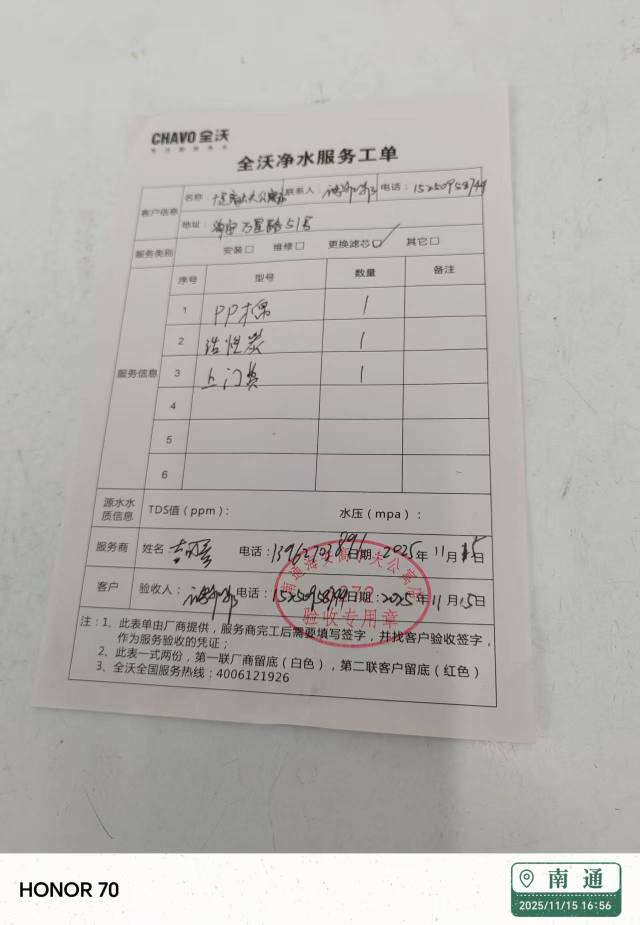 CHAVO 全沃
全沃净水服务工单
客户信息 名称： 联系人： 电话：15250958744
地址：海安万星路51号
服务类别 安装□ 维修□ 更换滤芯☑ 其它□
服务信息 序号 型号 数量 备注
1 PP棉 1
2 活性炭 1
3 上门费 1
4
5
6
源水水质信息 TDS值（ppm）： 水压（mpa）：
服务商 姓名 电话： 日期：2025年11月15日
客户 验收人： 电话：15250958744 日期：2025年11月15日
验收专用章
注：1、此表单由厂商提供，服务商完工后需要填写签字，并找客户验收签字，
作为服务验收的凭证；
2、此表一式两份，第一联厂商留底（白色），第二联客户留底（红色）
3、全沃全国服务热线：4006121926
HONOR 70
南通
2025/11/15 16:56